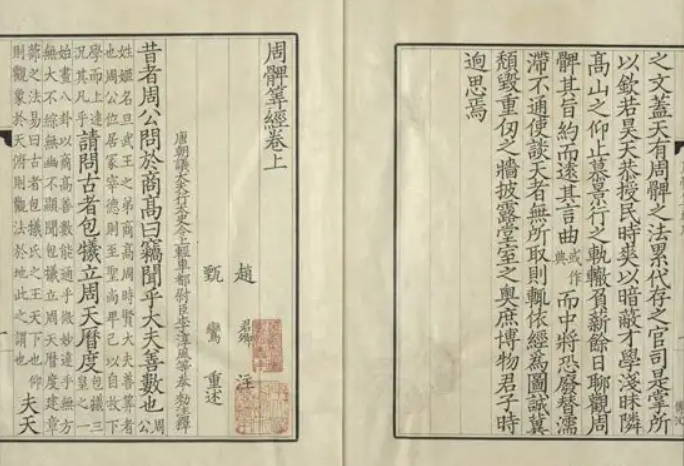 之文蓋天有周髀之法累代存之官司是掌所
以欽若昊天恭授民時爽以暗蔽才學淺昧隣
高山之仰止慕景行之軌轍負薪餘日聊觀周
髀其旨約而遠其言曲或作典而中將恐廢替濡
滯不通使談天者無所取則輒依經為圖誠冀
頽毀重仞之牆披露堂室之奧庶博物君子時
迥思焉
周髀筭經卷上
趙君卿注
甄鸞重述
唐朝議大夫行太史令上輕車都尉臣李淳風等奉勑注釋
昔者周公問於商高曰竊聞乎大夫善數也周公
姓姬名旦武王之弟商高周時賢大夫善筭者
也周公位居冢宰德則至聖尚卑己以自牧下
學而上達況其凡乎請問古者包犧立周天曆度包犧三皇之一
始畫八卦以商高善數能通乎微妙達乎無方
無大不綜無幽不顯聞包犧立周天曆度建章
蔀之法易曰古者包犧氏之王天下也仰
則觀象於天俯則觀法於地此之謂也夫天